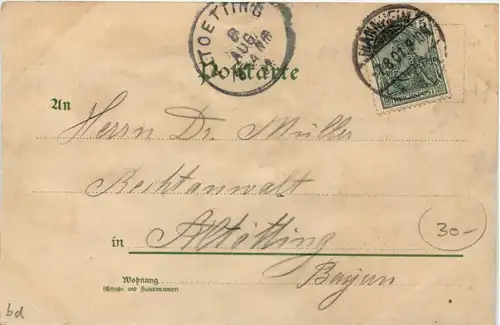 TOETTING
8
AUG
MANNHEIM
Postkarte
REICHSPOST
An
Herrn Dr. Müller
Rechtsanwalt
in Altötting
30-
Bayern
Wohnung
(Straße und Hausnummer)
bd